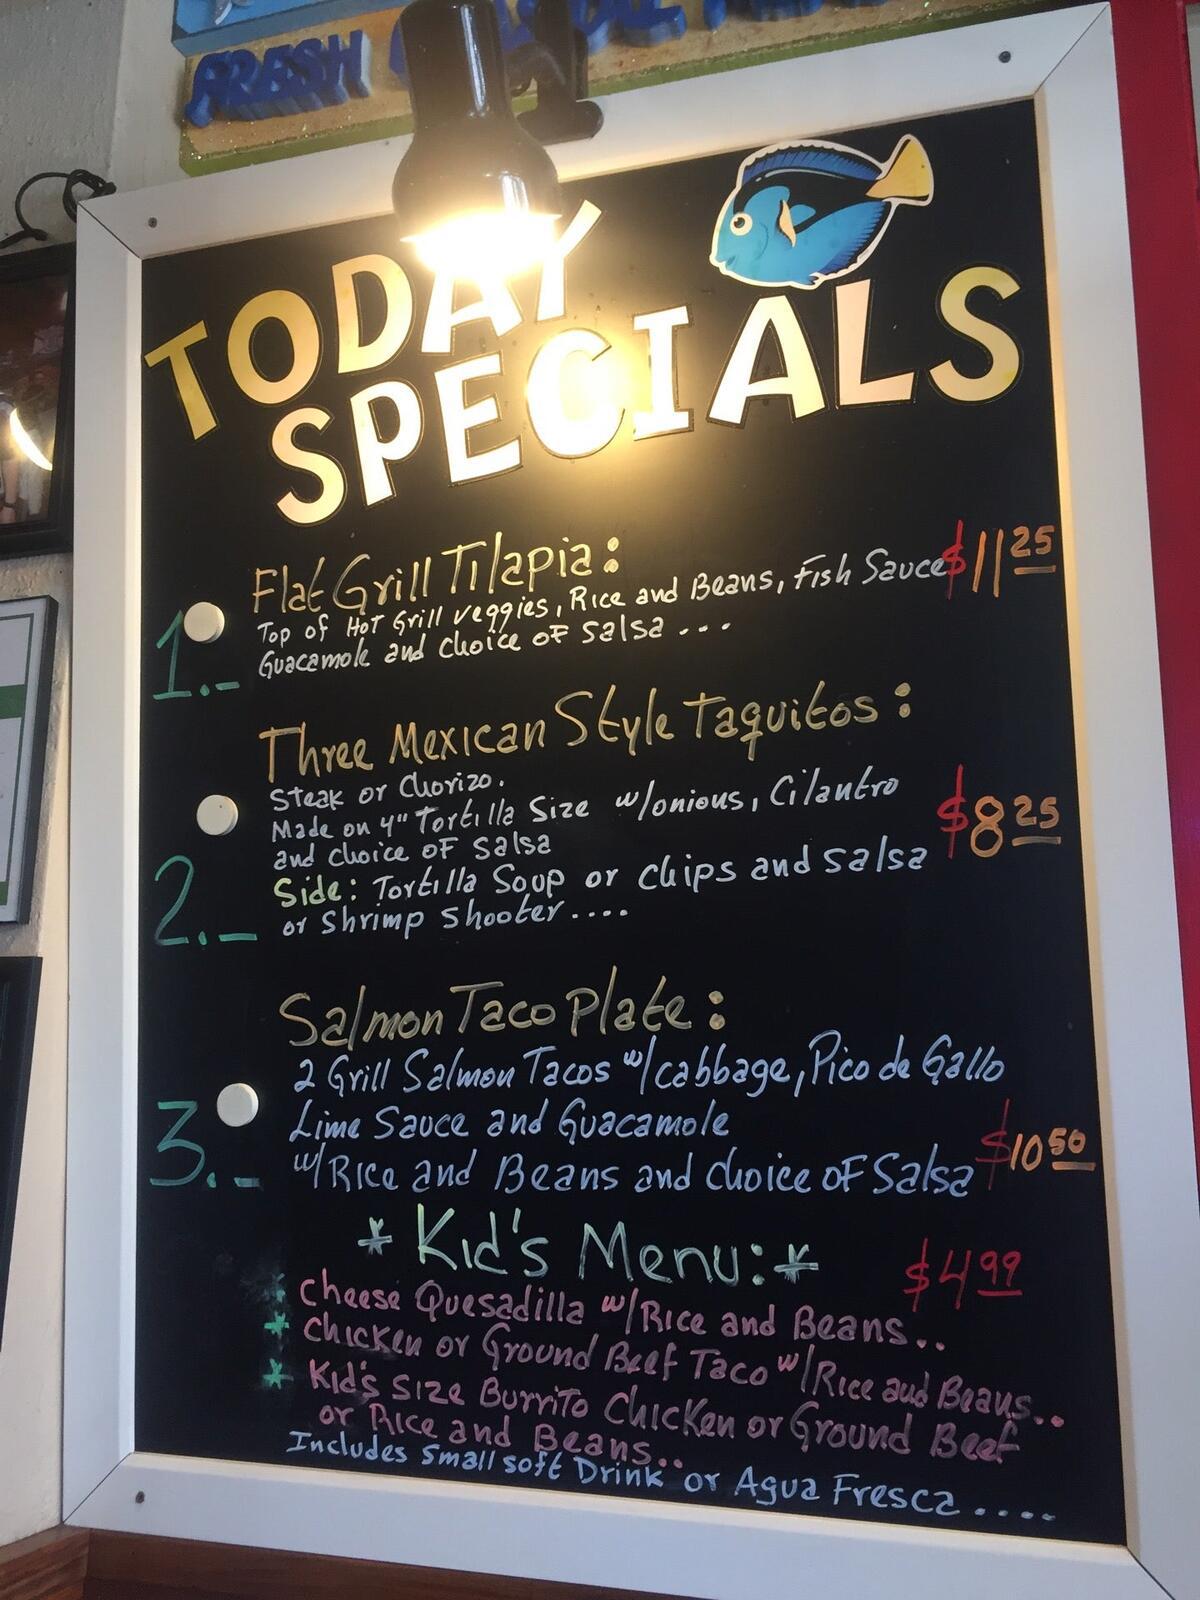 FRESH
TODAY
SPECIALS
1.- Flat Grill Tilapia:
Top of Hot Grill veggies, Rice and Beans, Fish Sauce $11 25
Guacamole and choice of Salsa ...
Three Mexican Style Taquitos:
Steak or Chorizo.
Made on 4" Tortilla Size w/onious, Cilantro
and choice of Salsa $8 25
2.- Side: Tortilla Soup or chips and salsa
or Shrimp shooter....
Salmon Taco Plate:
2 Grill Salmon Tacos w/cabbage, Pico de Gallo
Lime Sauce and Guacamole
3.- w/Rice and Beans and choice of Salsa $10 50
* Kid's Menu: * $4 99
* Cheese Quesadilla w/Rice and Beans..
* Chicken or Ground Beef Taco w/Rice and Beans..
* Kid's Size Burrito Chicken or Ground Beef
or Rice and Beans..
Includes small soft Drink or Agua Fresca ....